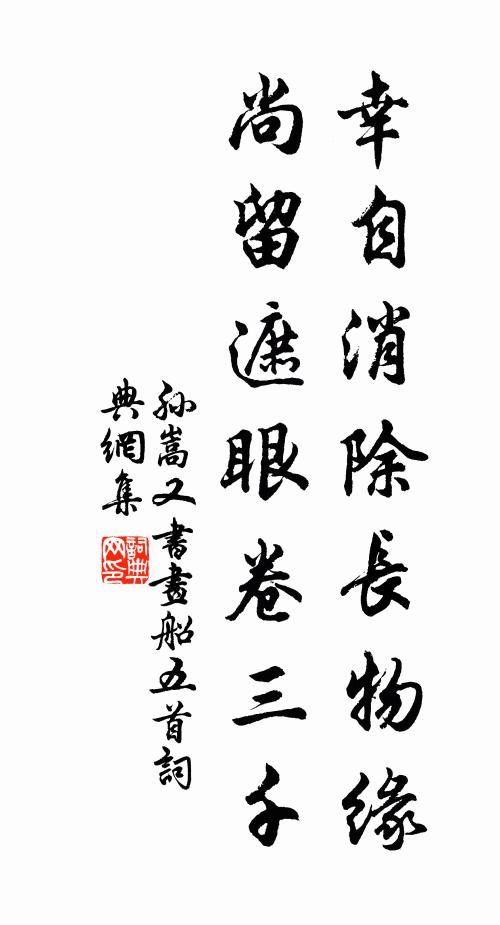 幸自消除長物緣
尚留遮眼卷三千
孫嵩又書畫船五首詞
典網集
詞典
网印